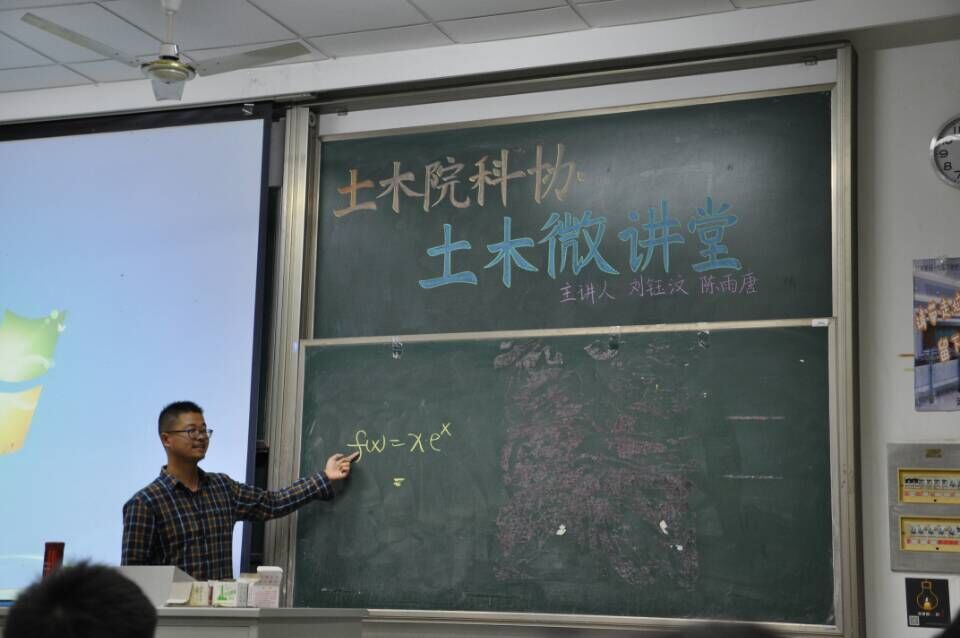 土木院科协
土木微讲堂
主讲人 刘钰汶 陈雨唐
f(x) = xe^x
=